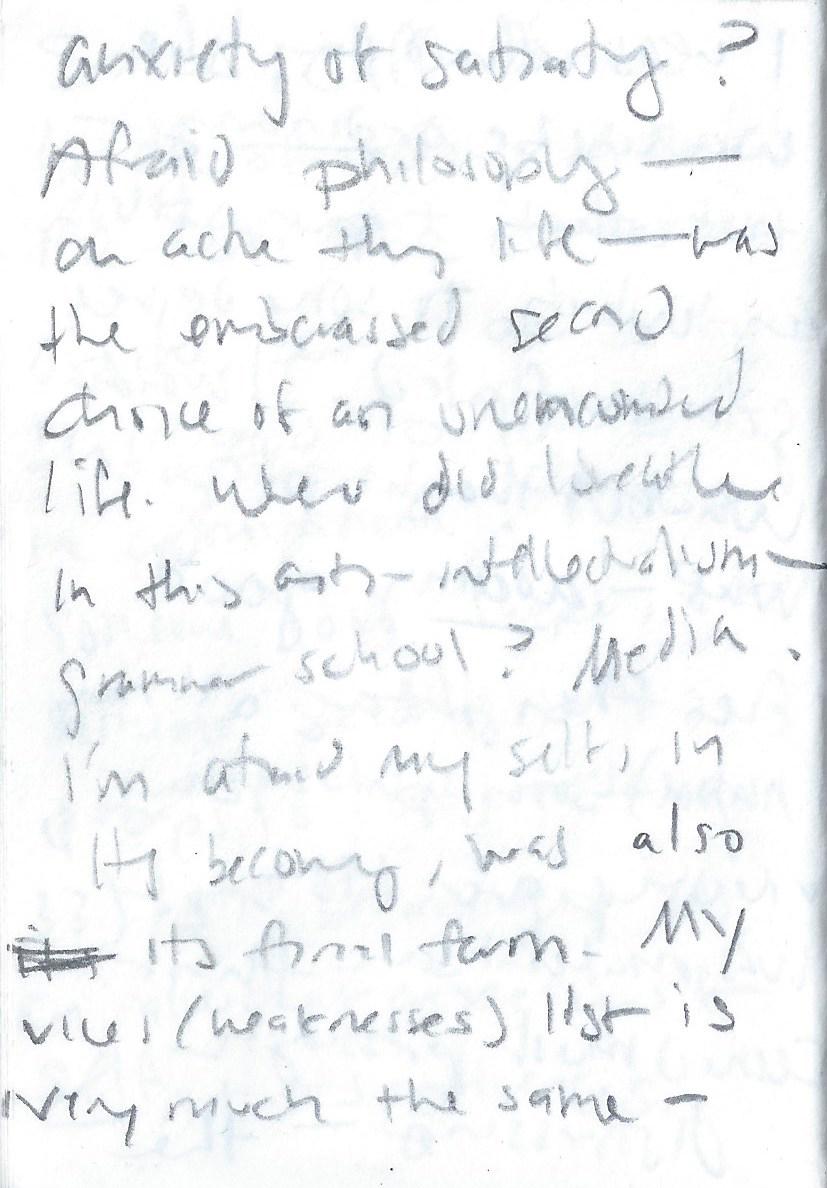 anxiety of satiaty?
Afraid philosophy —
on active thing life — was
the embarassed second
choice of an unexamined
life. When did
in this anti-intellectualism —
grammar school? Media.
I'm afraid my self, in
its becoming, was also
its final form. My
vices (weaknesses) list is
very much the same —